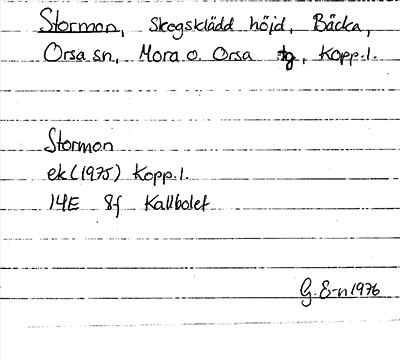 Stormon, Skogsklädd höjd, Bäcka,
Orsa sn, Mora o. Orsa tg, Kopp.l.
Stormon
ek (1975) Kopp.l.
14E 8f Kallbolet
G. E-n 1976